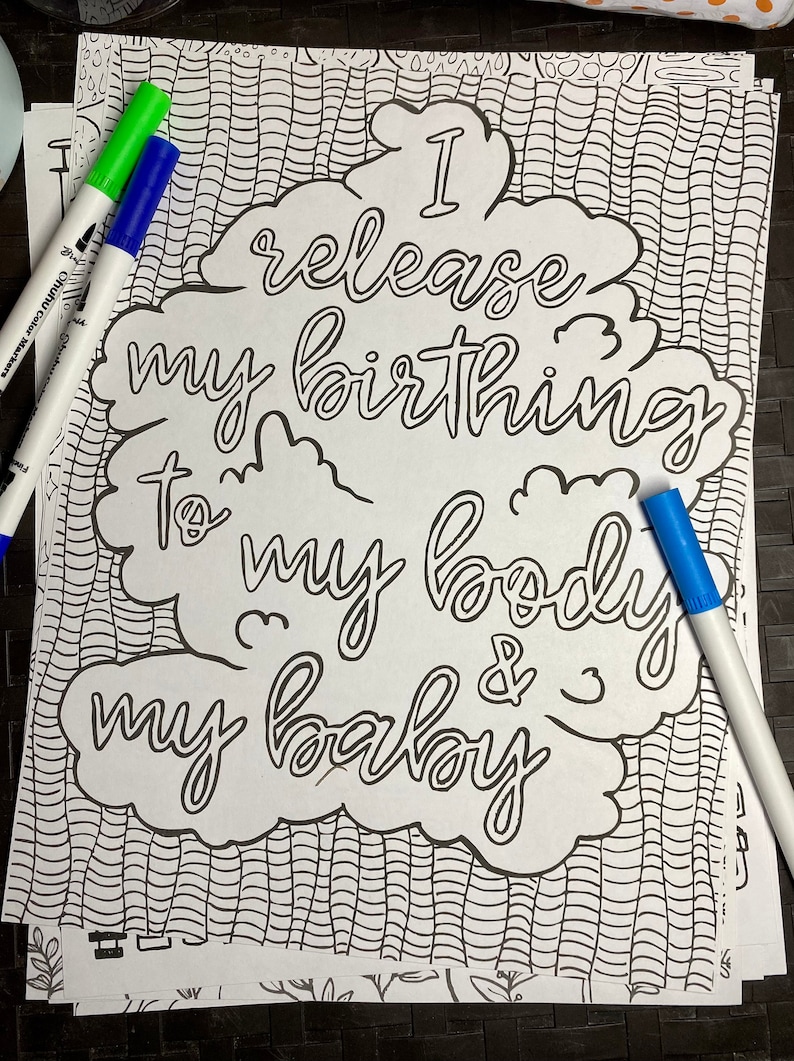 I
release
my birthing
to my body
&
my baby
Ohuhu Color Markers